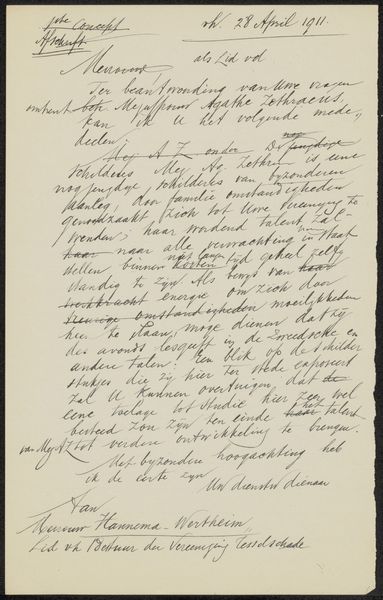 Concept
Afschrift
28 April 1911.
Mevrouw, als Lid vd
Ter beantwoording van Uwe vragen
omtrent Mejuffrouw Agathe Zethraeus,
kan ik U het volgende mede,
deelen:
Mej A Z onder De
Schilderes Mej. Ag. Zethr. is eene
nog jeugdige schilderes van byzonderen
aanleg, door familie omstandigheden
genoodzaakt, zich tot Uwe Vereeniging te
wenden; haar wordend talent zal
haar naar alle verwachting in staat
stellen binnen korten tyd geheel zelf,
standig te zyn. Als bewys van haar
werkkracht energie om zich door
omstandigheden moeilykheden
hier te slaan, moge dienen dat zy
des avonds lesgeeft in de Zweedsche en
andere talen. Een blik op de schilder
stukjes die zy hier ter stede exposeert
zal U kunnen overtuigen, dat de
eene toelage tot studie hier zeer wel
besteed zou zyn ten einde haar het talent
van Mej A Z tot verdere ontwikkeling te brengen.
Met byzondere hoogachting heb
ik de eer te zyn
Uw dienstw dienaar
Aan
Mevrouw Hannema-Wertheim,
Lid v/h Bestuur der Vereeniging Tesselschade